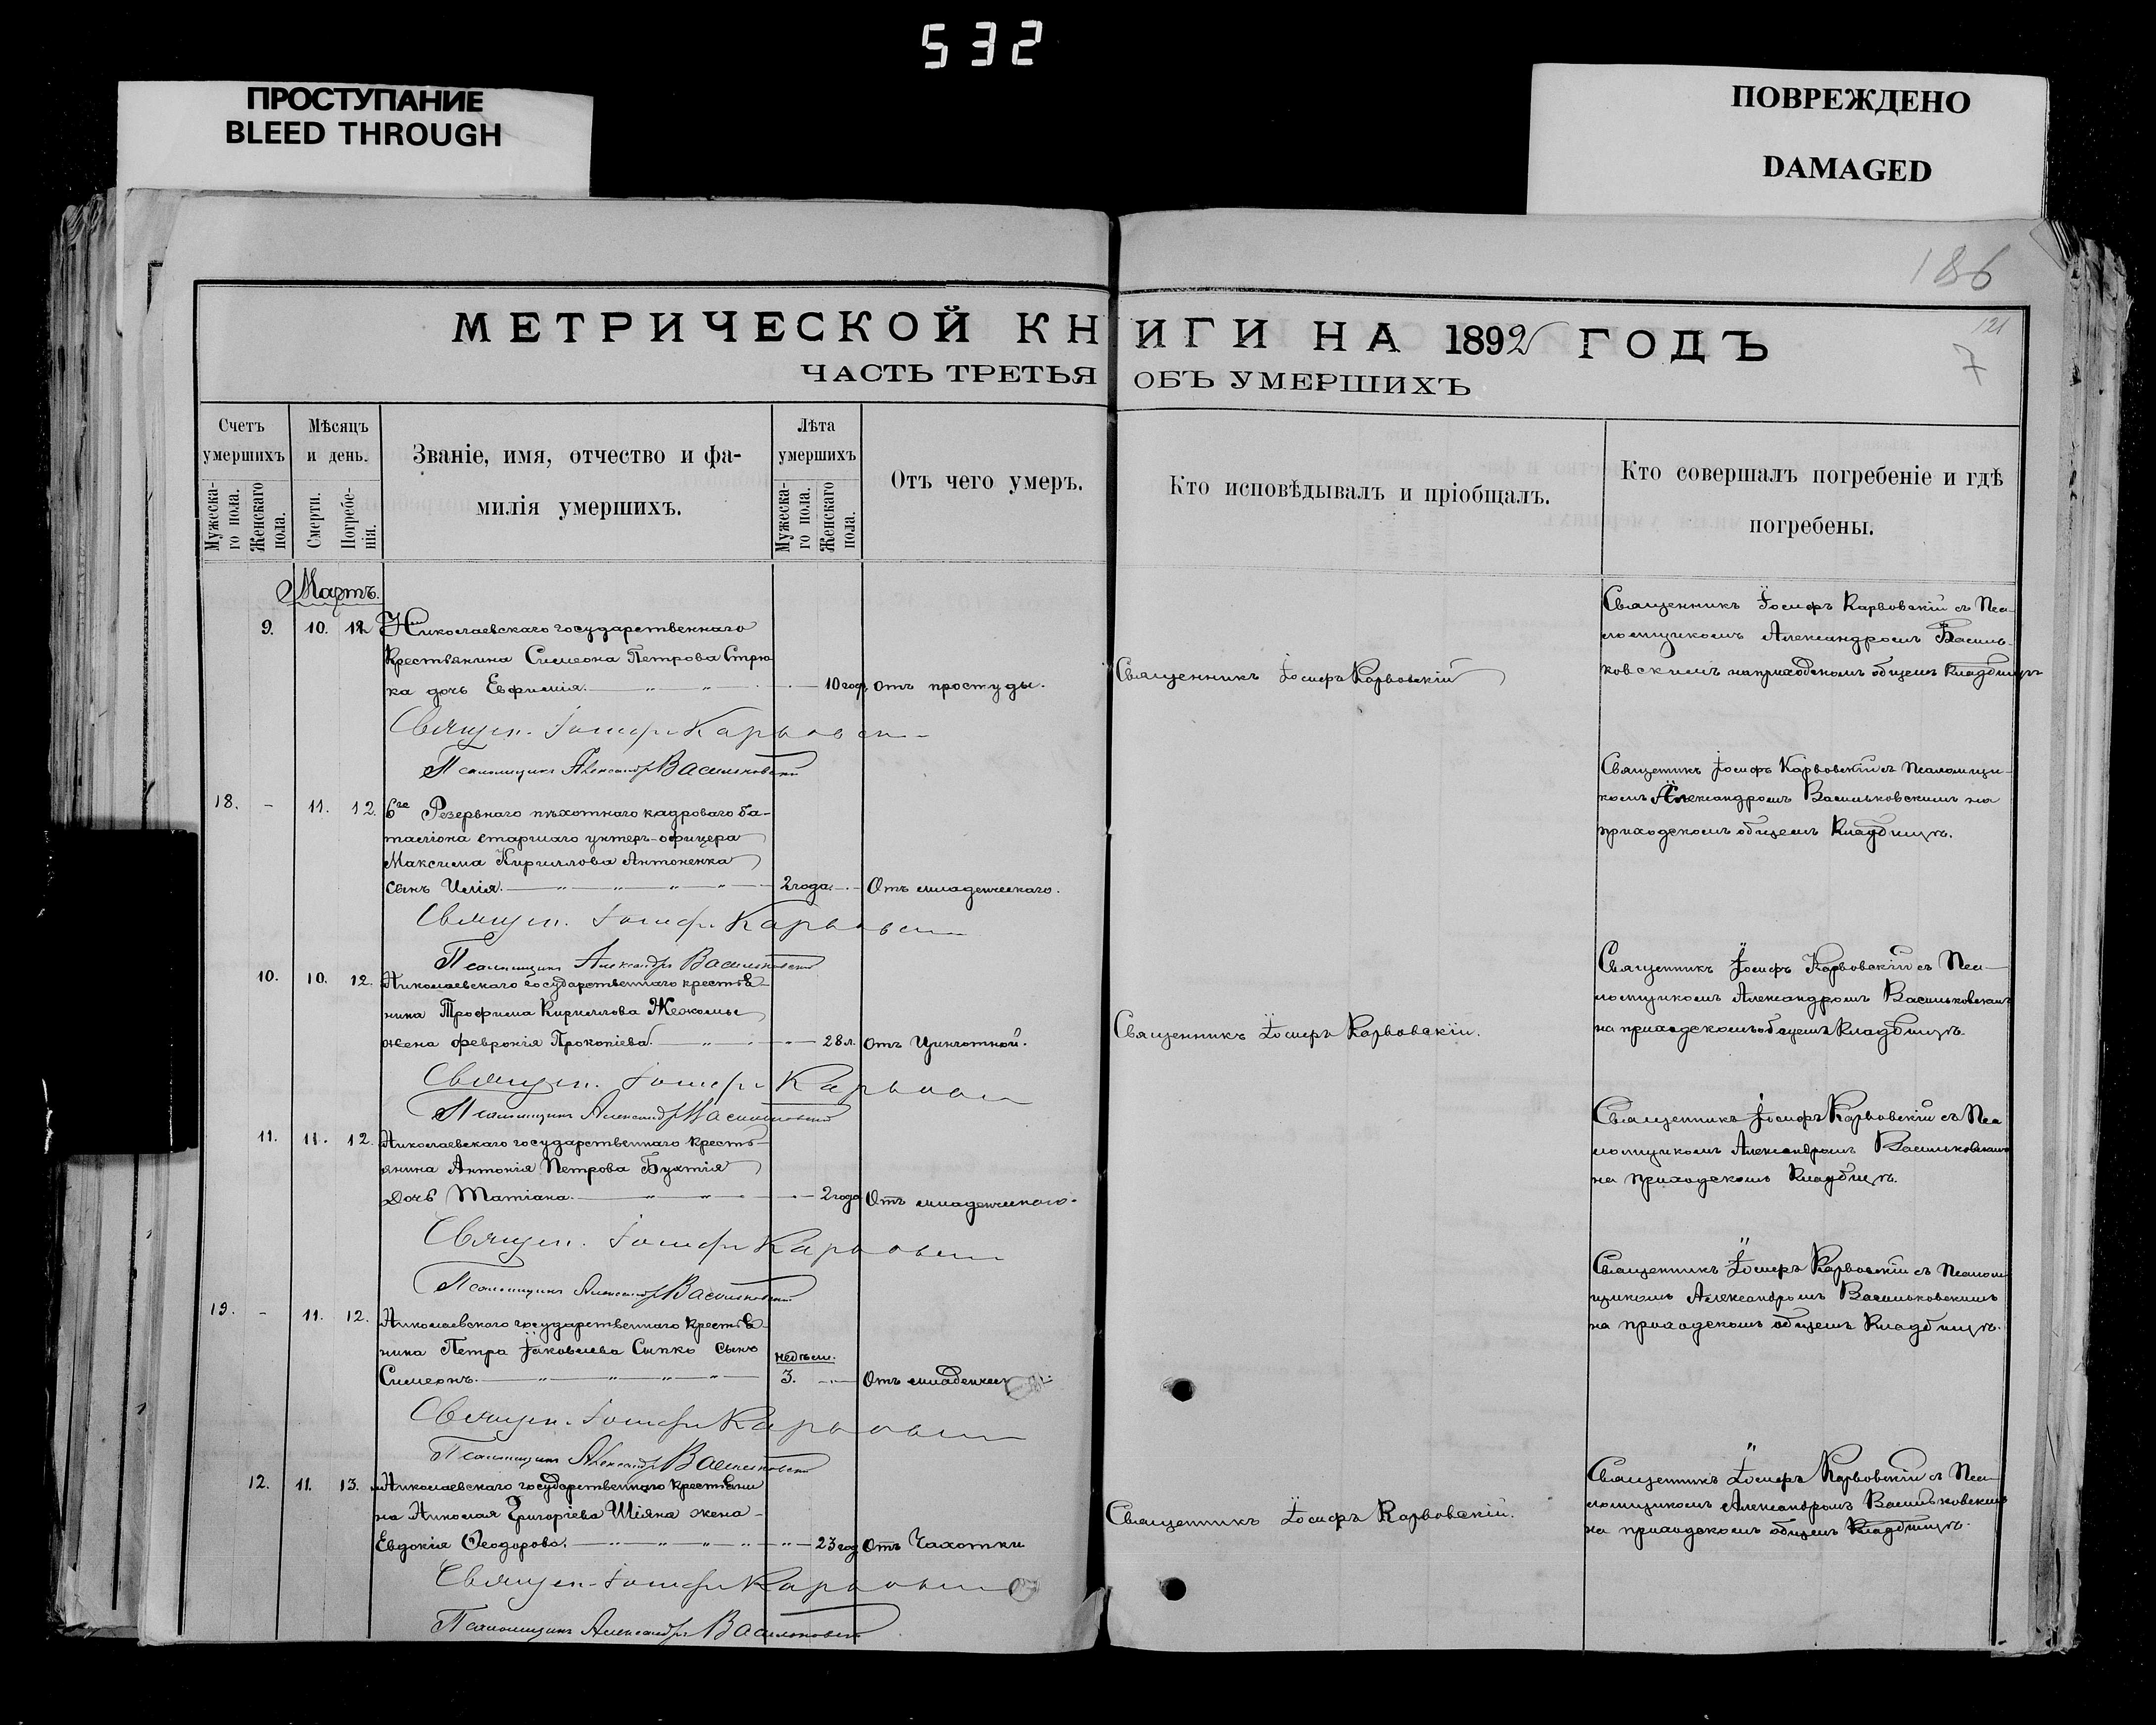 532
ПРОСТУПАНИЕ
BLEED THROUGH
ПОВРЕЖДЕНО
DAMAGED
186
121
7
МЕТРИЧЕСКОЙ КНИГИ НА 1892 ГОДЪ
ЧАСТЬ ТРЕТЬЯ ОБЪ УМЕРШИХЪ
Счетъ умершихъ
Мужеска-го пола.
Женскаго пола.
Мѣсяцъ и день.
Смерти.
Погребе-нія.
Званіе, имя, отчество и фа-
милія умершихъ.
Лѣта умершихъ
Мужеска-го пола.
Женскаго пола.
Отъ чего умеръ.
Кто исповѣдывалъ и пріобщалъ.
Кто совершалъ погребеніе и гдѣ
погребены.
Мартъ.
9. 10. 12 Николаевскаго государственнаго
крестьянина Симеона Петрова Стрю
ка дочь Евфимія. 10 год. отъ простуды.
Священникъ Іосифъ Карвовскій
Священникъ Іосифъ Карвовскій съ Пса-
ломщикомъ Александромъ Василь-
ковскимъ на приходскомъ общемъ кладбищѣ
Священ. Іосифъ Карвовскі
Псаломщикъ Александръ Васильковскій
18. - 11. 12. 6го Резервнаго пѣхотнаго кадроваго ба-
таліона старшаго унтеръ-офицера
Максима Кириллова Антоненка
сынъ Илія. 2 года. Отъ младенческаго.
Священникъ Іосифъ Карвовскій съ Псаломщи-
комъ Александромъ Васильковскимъ на
приходскомъ общемъ кладбищѣ.
Священ. Іосифъ Карвовскі
Псаломщикъ Александръ Васильковскій
10. 10. 12. Николаевскаго государственнаго крестья-
нина Трофима Кириллова
жена Февронія Прокопіева. 28 л. отъ Цинготной.
Священникъ Іосифъ Карвовскій.
Священникъ Іосифъ Карвовскій съ Пса-
ломщикомъ Александромъ Васильковскимъ
на приходскомъ общемъ кладбищѣ.
Священ. Іосифъ Карвовскі
Псаломщикъ Александръ Васильковскій
11. 11. 12. Николаевскаго государственнаго кресть-
янина Антонія Петрова Бухтія
дочь Татіана. 2 года Отъ младенческаго.
Священникъ Іосифъ Карвовскій съ Пса
ломщикомъ Александромъ Васильковскимъ
на приходскомъ кладбищѣ.
Священ. Іосифъ Карвовскі
Псаломщикъ Александръ Васильковскій
19. - 11. 12. Николаевскаго государственнаго крестья-
нина Петра Іаковлева Сыпко сынъ
Симеонъ. недѣли. 3. Отъ младенческ
Священникъ Іосифъ Карвовскій съ Псалом
щикомъ Александромъ Васильковскимъ
на приходскомъ общемъ кладбищѣ.
Священ. Іосифъ Карвовскі
Псаломщикъ Александръ Васильковскій
12. 11. 13. Николаевскаго государственнаго крестьяни
на Николая Григоріева Шіяна жена
Евдокія Ѳеодорова. 23 год Отъ Чахотки
Священникъ Іосифъ Карвовскій.
Священникъ Іосифъ Карвовскій съ Пса-
ломщикомъ Александромъ Васильковскимъ
на приходскомъ общемъ кладбищѣ.
Священ. Іосифъ Карвовскі
Псаломщикъ Александръ Васильковскій